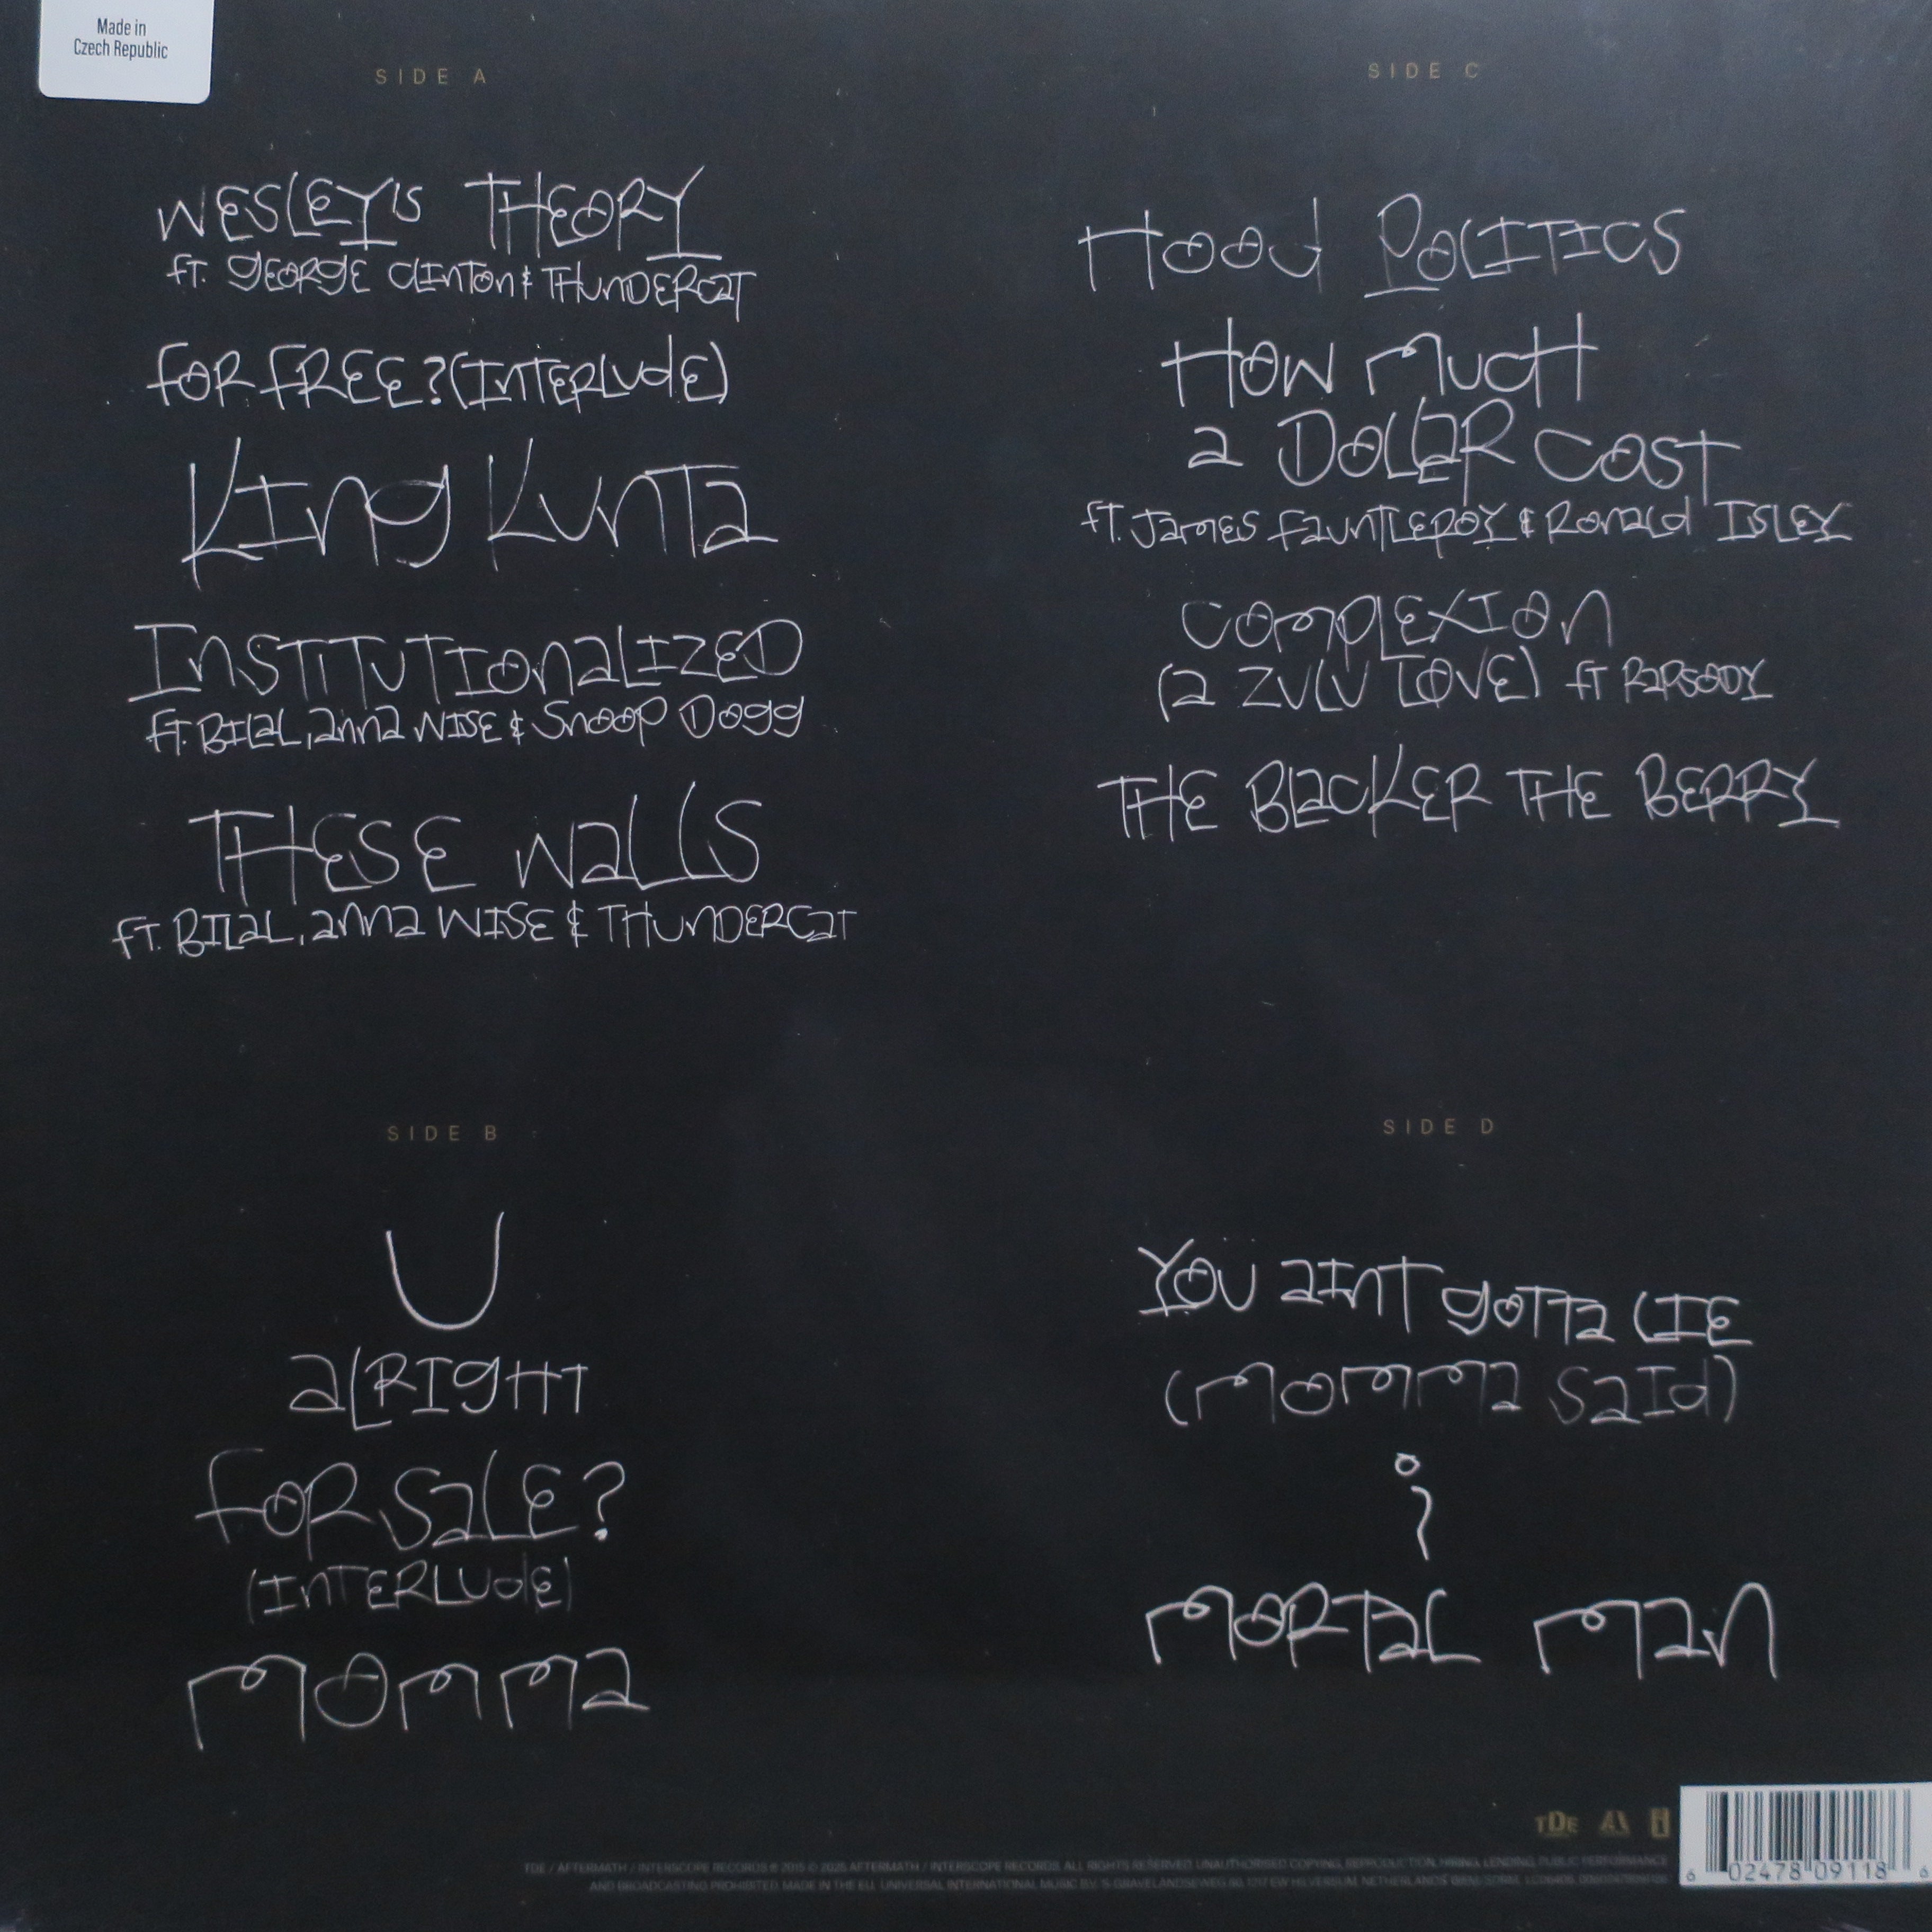 Made in
Czech Republic
SIDE A
WESLEY'S THEORY
FT. GEORGE CLINTON & THUNDERCAT
FOR FREE? (INTERLUDE)
KING KUNTA
INSTITUTIONALIZED
FT. BILAL, ANNA WISE & SNOOP DOGG
THESE WALLS
FT. BILAL, ANNA WISE & THUNDERCAT
SIDE B
U
ALRIGHT
FOR SALE?
(INTERLUDE)
MOMMA
SIDE C
HOOD POLITICS
HOW MUCH
A DOLLAR COST
FT. JAMES FAUNTLEROY & RONALD ISLEY
COMPLEXION
(A ZULU LOVE) FT RAPSODY
THE BLACKER THE BERRY
SIDE D
YOU AINT GOTTA LIE
(MOMMA SAID)
i
MORTAL MAN
TDE
TDE / AFTERMATH / INTERSCOPE RECORDS ℗ 2015 © 2025 AFTERMATH / INTERSCOPE RECORDS. ALL RIGHTS RESERVED. UNAUTHORISED COPYING, REPRODUCTION, HIRING, LENDING, PUBLIC PERFORMANCE
AND BROADCASTING PROHIBITED. MADE IN THE EU. UNIVERSAL INTERNATIONAL MUSIC B.V.
6 02478 09118 6